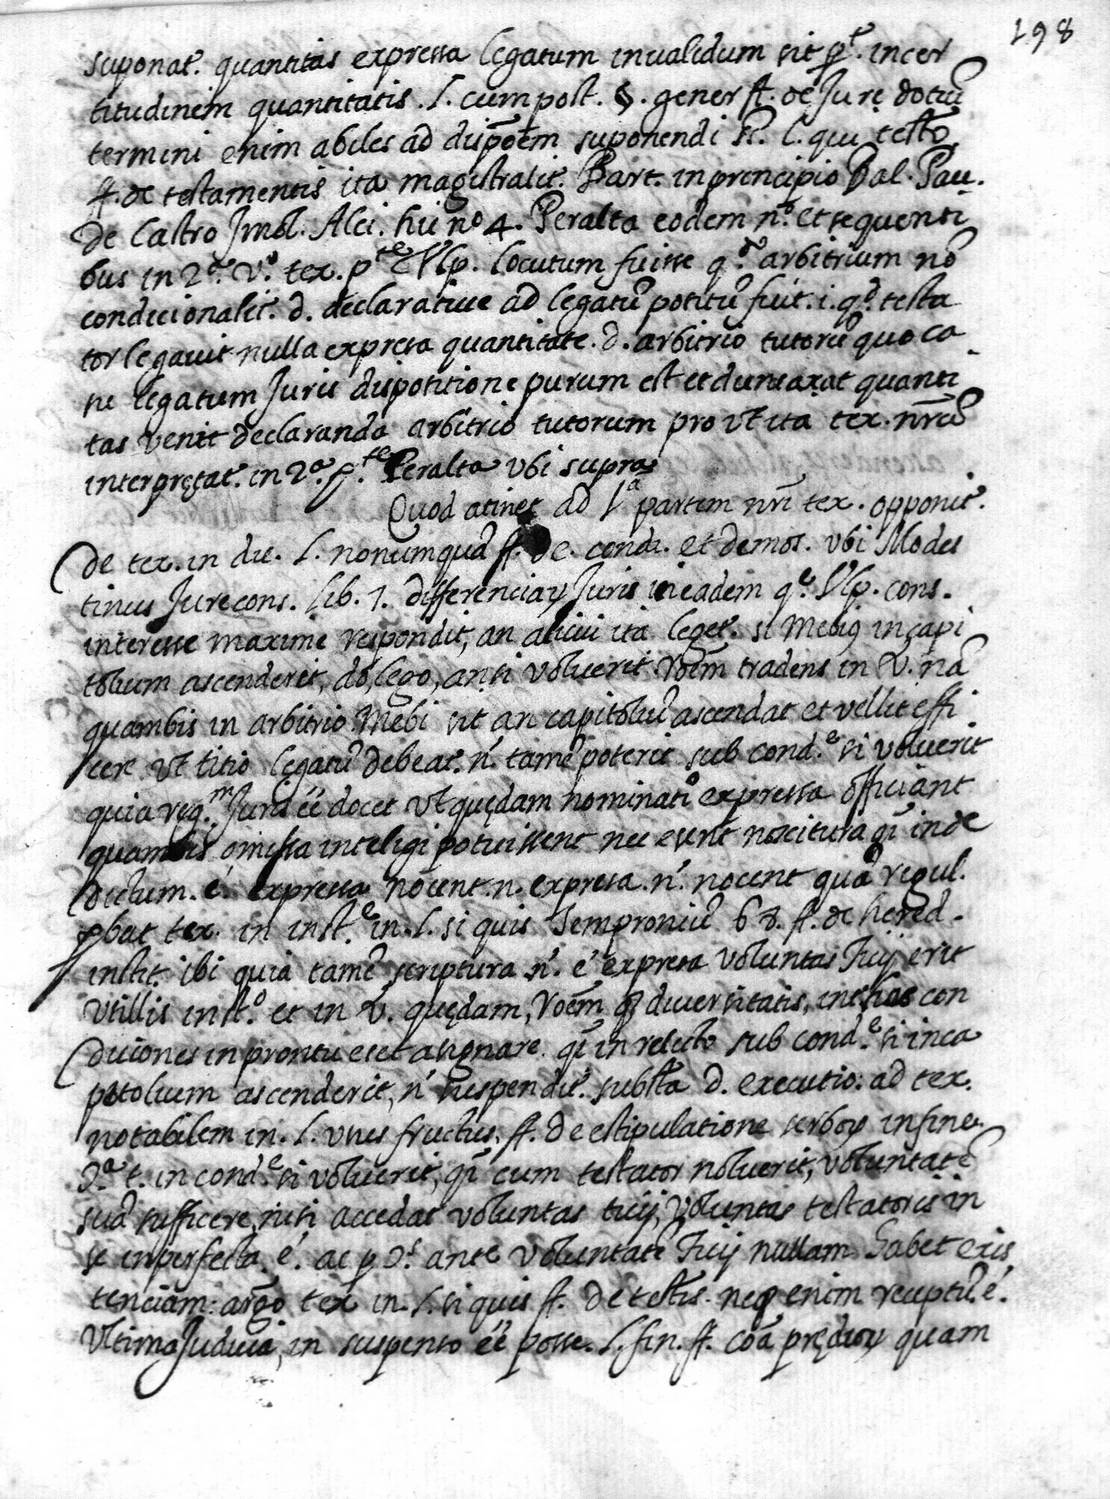 198
suponat. quantitas expressa legatum inualidum sit pt. incer
titudinem quantitatis. l. cum post. §. gener ff. de Jure dotiũ
termini enim abiles ad dispõem suponendi st. l. qui testõ
ff. de testamentis ita magistralit. Bart. in principio Bal. Pau.
de Castro Jmol. Alci. hii nº 4. Peralta eodem nº. et sequenti
bus in 2ª. vº. tex. pte Vlp. locutum fuisse qdo arbitrium nõ
condicionalit. d. declaratiue ad legatũ potitũ fuit. i. qd. testa
tor legauit nulla expresa quantitate. d. arbitrio tutorũ quo ca
su legatum Juris dispotitione purum est et duntaxat quanti
tas venit declaranda arbitrio tutorum pro vt ita tex. nrũ
interpretat. in 2ª. pte. Peralta vbi supra.
Quod atinet ad 1ª partem nri tex. opponit.
de tex. in die. l. nonumquã ff. de. condi. et demos. vbi Modes
tinus Jurecons. lib. 1. differenciarũ Juris in eadem qe. Vlp. cons.
interesse maxime respondit, an alicui ita leget. si Mebius in capi
tolium ascenderit, do, lego, an si voluerit. Roem tradens in V. nã
quambis in arbitrio Mebi sit an capitoliũ ascendat et vellit effi
cere vt titio legatũ debeat. n. tamẽ poterit sub conde. si voluerit
quia regm. Juris ẽẽ docet vt quędam nominatiº expressa officiant
quambis omissa inteligi potuissent nec essent nocitura qĩ inde
dictum. é. expressa nocent. n. expresa. n. nocent quã regul.
pbat tex. in inste. in. l. si quis Semproniũ 68. ff. de hered.
instit. ibi quia tamẽ scriptura n. é expresa voluntas Ticij erit
vtillis instº. et in V. quędam, Roem diuersitatis, inter has con
diciones in prontu esset asignare. qĩ in relicto sub conde. si in ca
pitolium ascenderit, n suspendit. substã d. executio. ad tex.
notabilem in. l. vsus fructus. ff. de estipulatione serborũ in fine.
2ª t. in conde si voluerit, qĩ cum testator noluerit, voluntatẽ
suã sufficere, nisi accedat voluntas ticij, voluntas testatoris in
se inperfecta. é. ac p 2t. ante voluntatẽ Ticij nullam habet exis
tenciam: argo tex in. l. si quis ff. de testis. neq enim receptũ. é.
vltima Judicia, in suspenso ẽẽ posse. l. fin. ff. coã prędiorũ quam